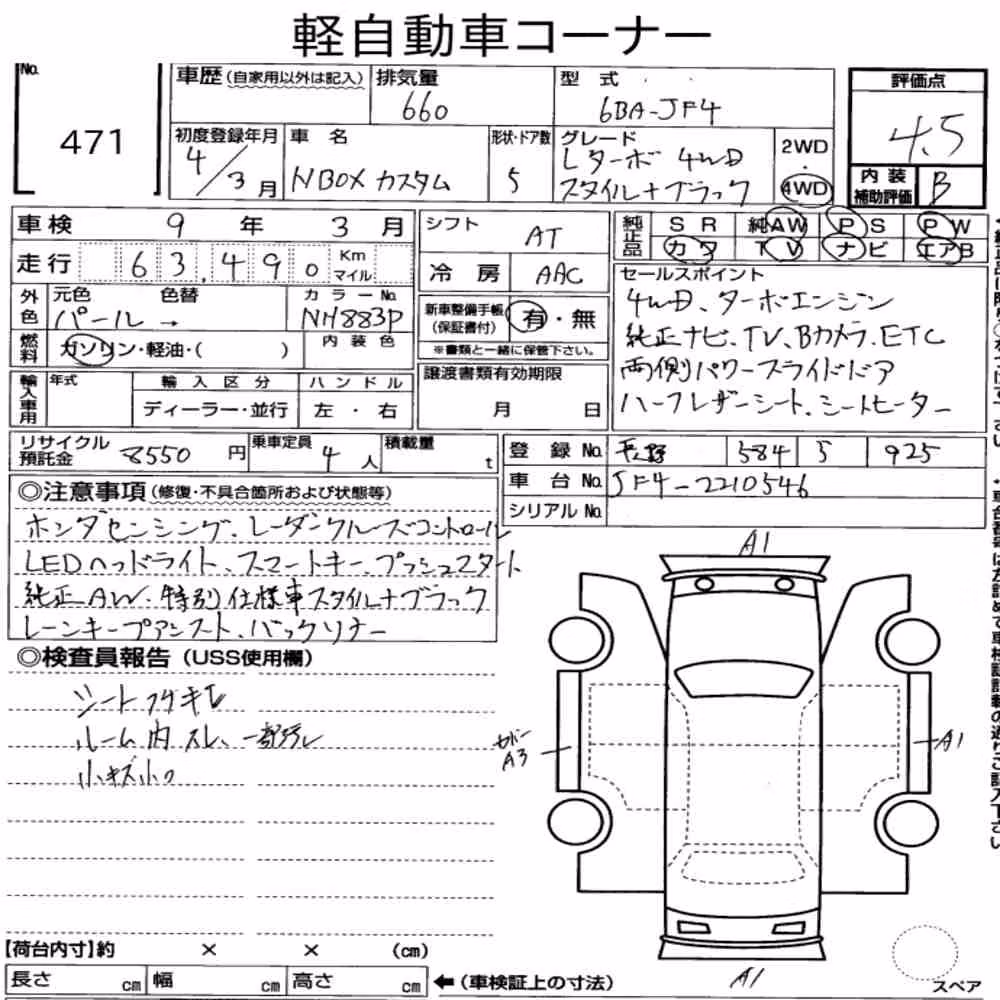 軽自動車コーナー
No.
471
車歴(自家用以外は記入)
排気量
660
型 式
6BA-JF4
評価点
4.5
内装補助評価
B
初度登録年月
4/3月
車 名
NBOX カスタム
形状・ドア数
5
グレード
Lターボ 4WD
スタイル+ブラック
2WD
・
4WD
車検 9 年 3 月
走行 63,490 Km マイル
外色
元色 色替
パール →
カラーNo.
NH883P
燃料
ガソリン・軽油・( )
内 装 色
輸入車用
年式
輸 入 区 分
ディーラー・並行
ハ ン ド ル
左 ・ 右
シフト
AT
冷 房
AAC
新車整備手帳
(保証書付)
有・無
※書類と一緒に保管下さい。
譲渡書類有効期限
月 日
純正品
SR 純AW PS PW
カワ TV ナビ エアB
セールスポイント
4WD、ターボエンジン
純正ナビ、TV、Bカメラ、ETC
両側パワースライドドア
ハーフレザーシート、シートヒーター
リサイクル預託金 8550 円
乗車定員 4 人
積載量 t
登 録 No. 長野 584 ろ 925
車 台 No. JF4-2210546
シリアル No.
◎注意事項(修復・不具合箇所および状態等)
ホンダセンシング、レーダークルーズコントロール
LEDヘッドライト、スマートキー、プッシュスタート
純正AW、特別仕様車スタイル+ブラック
レーンキープアシスト、バックソナー
◎検査員報告(USS使用欄)
シートコゲキレ
ルーム内スレ、一部汚レ
小キズ小凹
A1
カバー
A3
A1
A1
【荷台内寸】約 × × (cm)
長さ cm 幅 cm 高さ cm
←(車検証上の寸法)
スペア